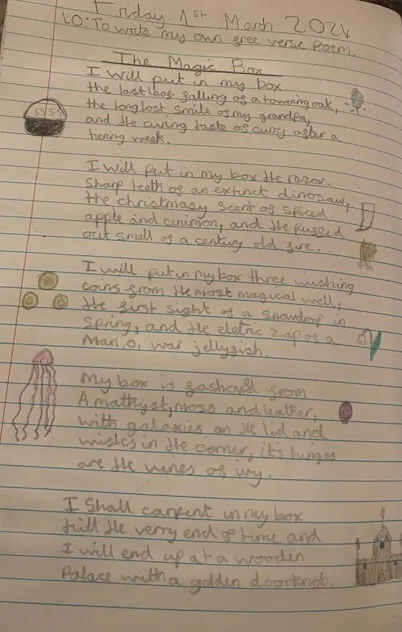 Friday 1st March 2024
LO: To write my own free verse poem.
The Magic Box
I will put in my box
the last leaf falling of a towering oak,
the long lost smile of my grandpa,
and the curing taste of curry after a
tiering week.
I will put in my box the razor
sharp teeth of an extinct dinosaur,
the christmasy scent of spiced
apple and cinimon, and the puffed
out smell of a century old fire.
I will put in my box three wishing
coins from the most magical well,
the first sight of a snowdrop in
spring, and the eletric zap of a
Man, o, war jellyfish.
My box is fashond from
Amathyst, moss and leather,
with galaxies on the lid and
wishes in the corner, it's hinges
are the vines of ivy.
I Shall carpent in my box
till the verry end of time and
I will end up at a wooden
Palace with a golden doorknob.